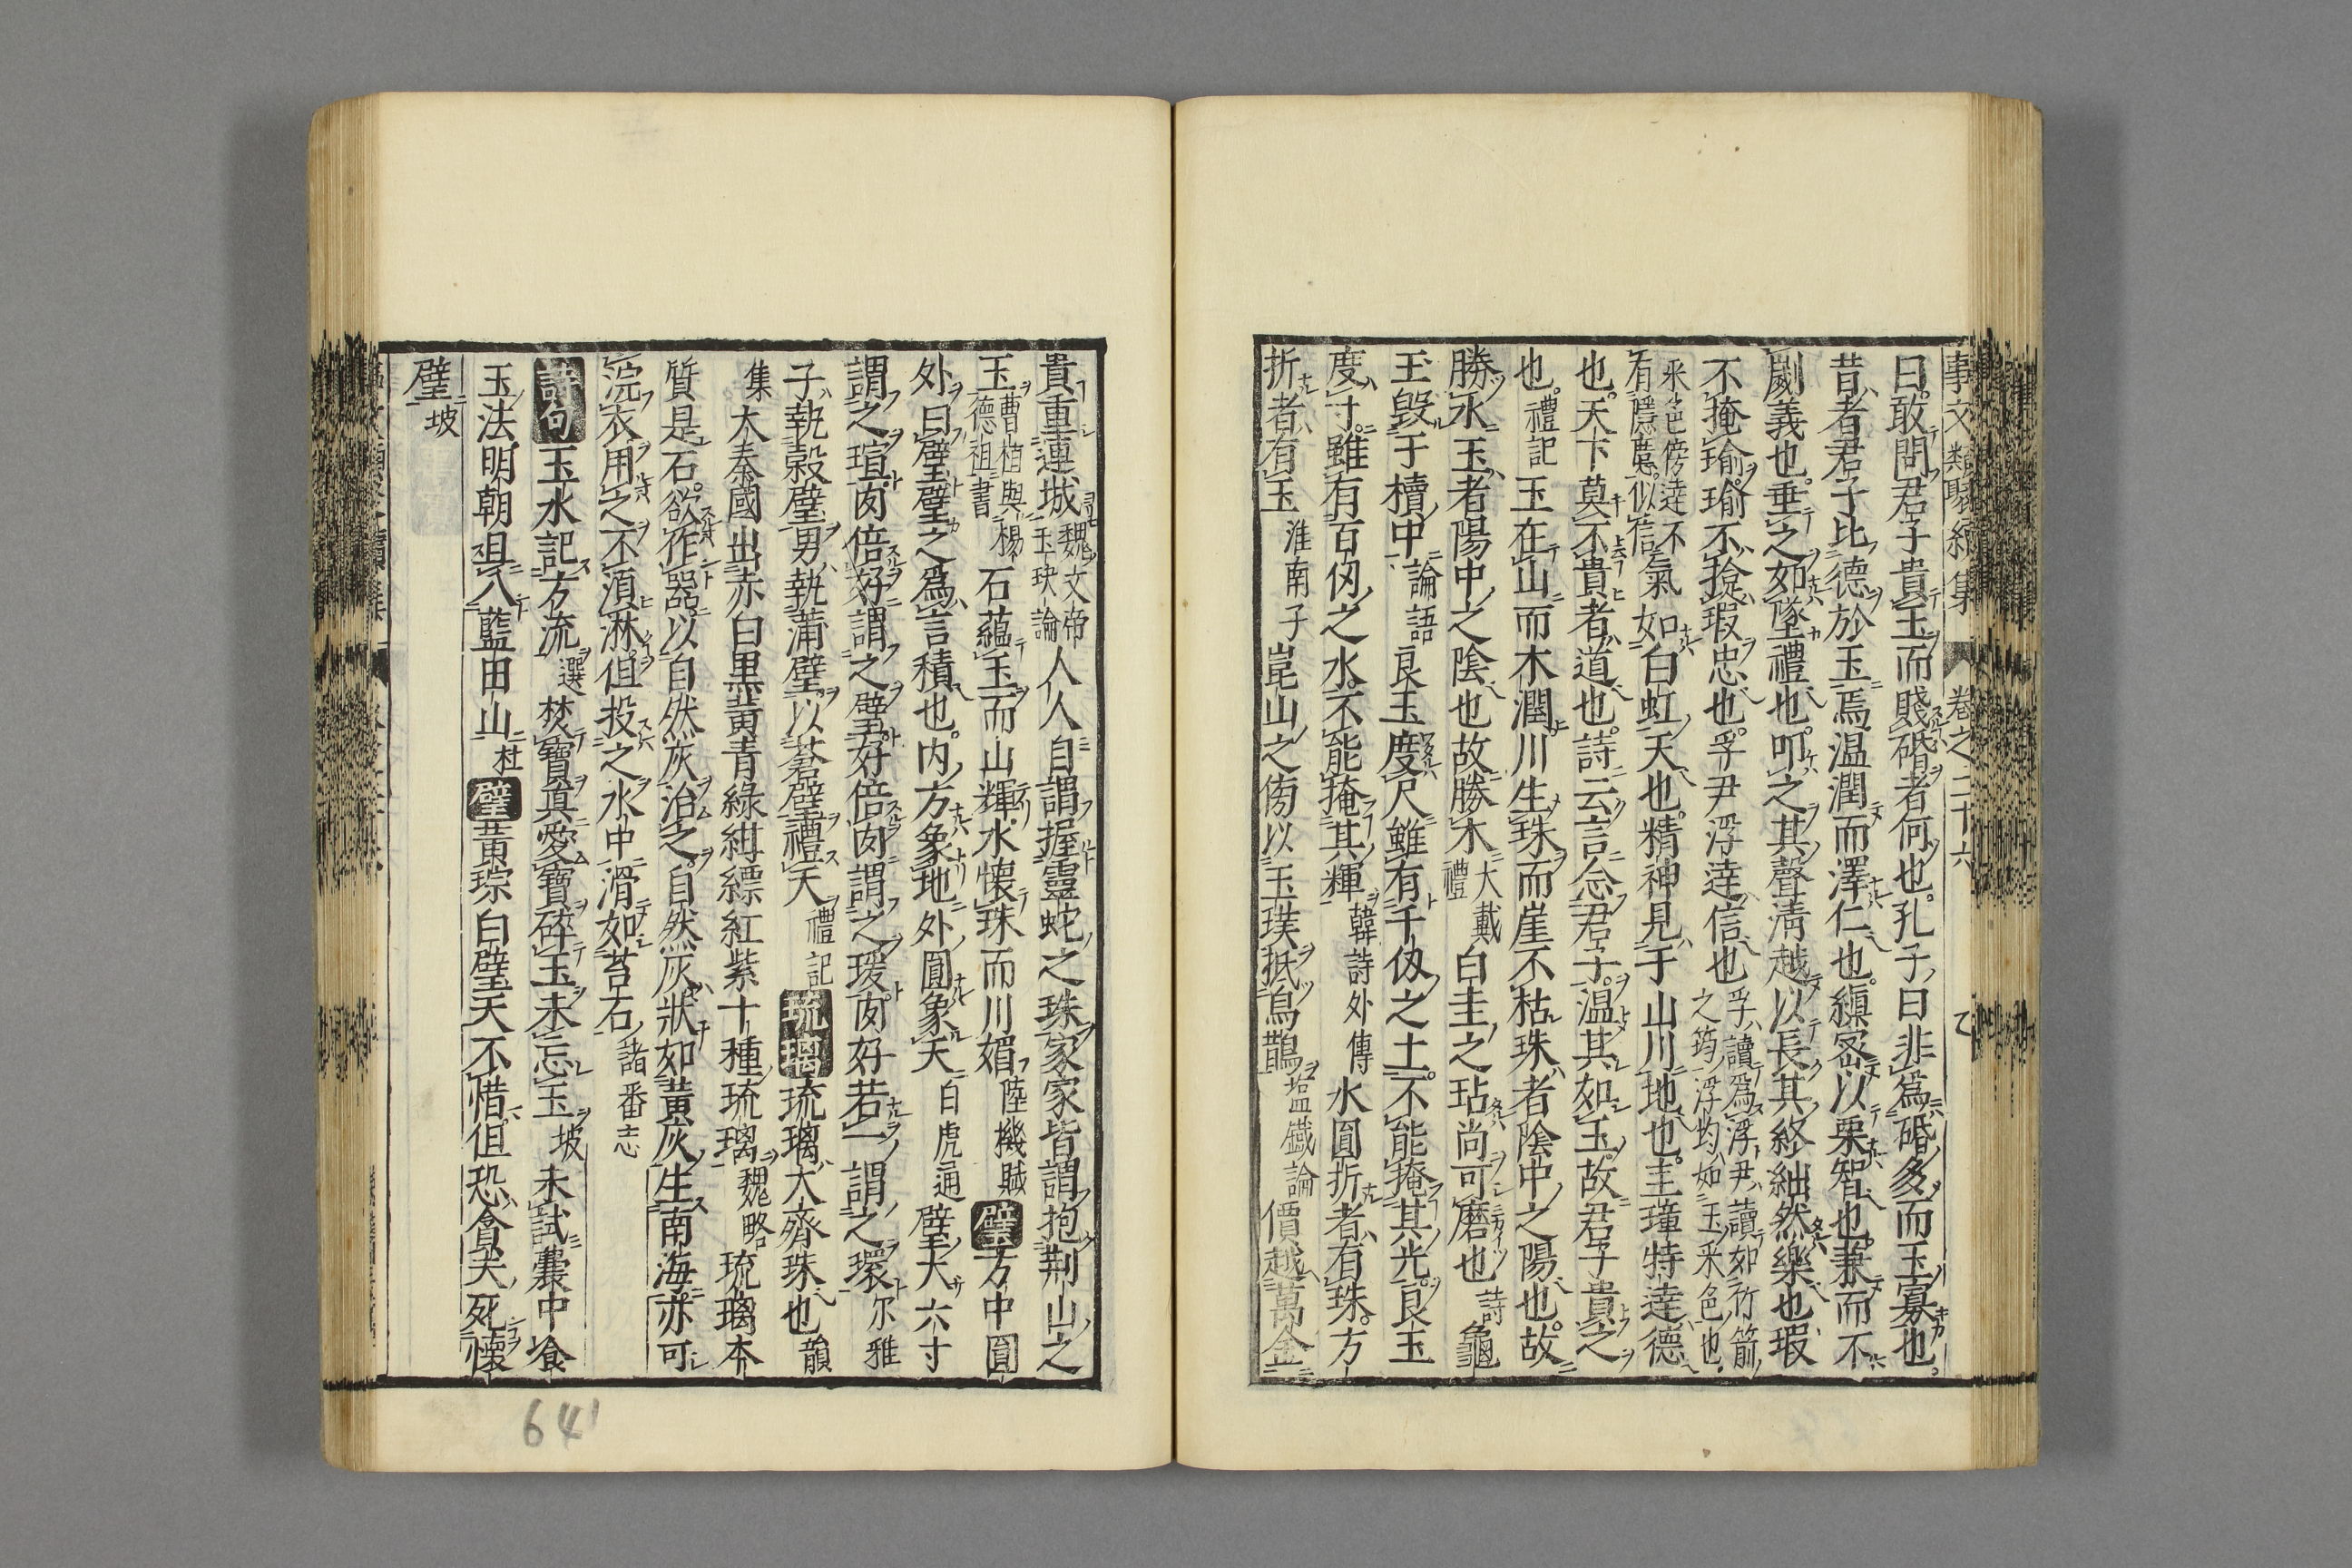 事文類聚續集 卷之二十六 七
曰敢問君子貴玉而賤碈者何也孔子曰非爲碈多而玉寡也
昔者君子比德於玉焉温潤而澤仁也縝宻以栗智也兼而不
劌義也垂之如墜禮也叩之其聲清越以長其終絀然樂也瑕
不掩瑜瑜不揜瑕忠也孚尹浮達信也 孚讀爲浮尹讀如竹箭之筠浮均如玉釆色也
釆色傍達不有隱蔽似信 氣如白虹天也精神見于山川地也圭璋特達德
也天下莫不貴者道也詩云言念君子温其如玉故君子貴之
也 禮記 玉在山而木潤川生珠而崖不枯珠者陰中之陽也故
勝水玉者陽中之陰也故勝木 大戴禮 白圭之玷尚可磨也 詩 龜
玉毀于櫝中 論語 良玉度尺雖有千仭之土不能掩其光良玉
度寸雖有百仭之水不能掩其輝 韓詩外傳 水圓折者有珠方
折者有玉 淮南子 崑山之傍以玉璞抵烏鵲 塩鐵論 價越萬金
貴重連城 魏文帝玉玦論 人人自謂握靈蛇之珠家家皆謂抱荆山之
玉 曹植與楊德祖書 石蘊玉而山輝水懷珠而川媚 陸機賦 璧 方中圓
外曰璧璧之爲言積也内方象地外圓象天 白虎通 璧大六寸
謂之瑄肉倍好謂之璧好倍肉謂之瑗肉好若一謂之環 尔雅
子執榖璧男執蒲璧以蒼璧禮天 禮記 琉璃 琉璃大齊珠也 韻
集 大秦國出赤白黒黄青緑紺縹紅紫十種琉璃 魏略 琉璃本
質是石欲作器以自然灰治之自然灰狀如黄灰生南海亦可
浣衣用之不湏淋但投之水中滑如苔石 諸番志
詩句 玉水記方流 選 焚寶真愛寶碎玉未忘玉 坡 未試囊中飡
玉法明朝且入藍田山 杜 璧 黄琮白璧天不惜但恐貪夫死懷
璧 坡
641